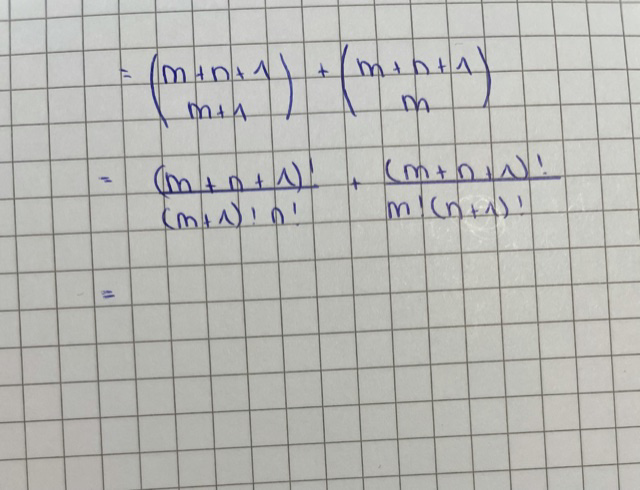 = (m+n+1 m+1) + (m+n+1 m)
= (m+n+1)! / (m+1)! n! + (m+n+1)! / m! (n+1)!
=